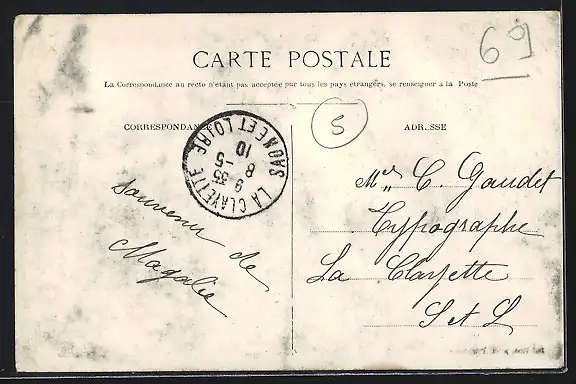 69
CARTE POSTALE
La Correspondance au recto n'étant pas acceptée par tous les pays étrangers, se renseigner à la Poste
5
CORRESPONDANCE
ADR..SSE
LA CLAYETTE
SAONE ET LOIRE
9 35
8 -5
10
Souvenir de
Magalie
C. Gaudet
Typographe
La Clayette
S et L